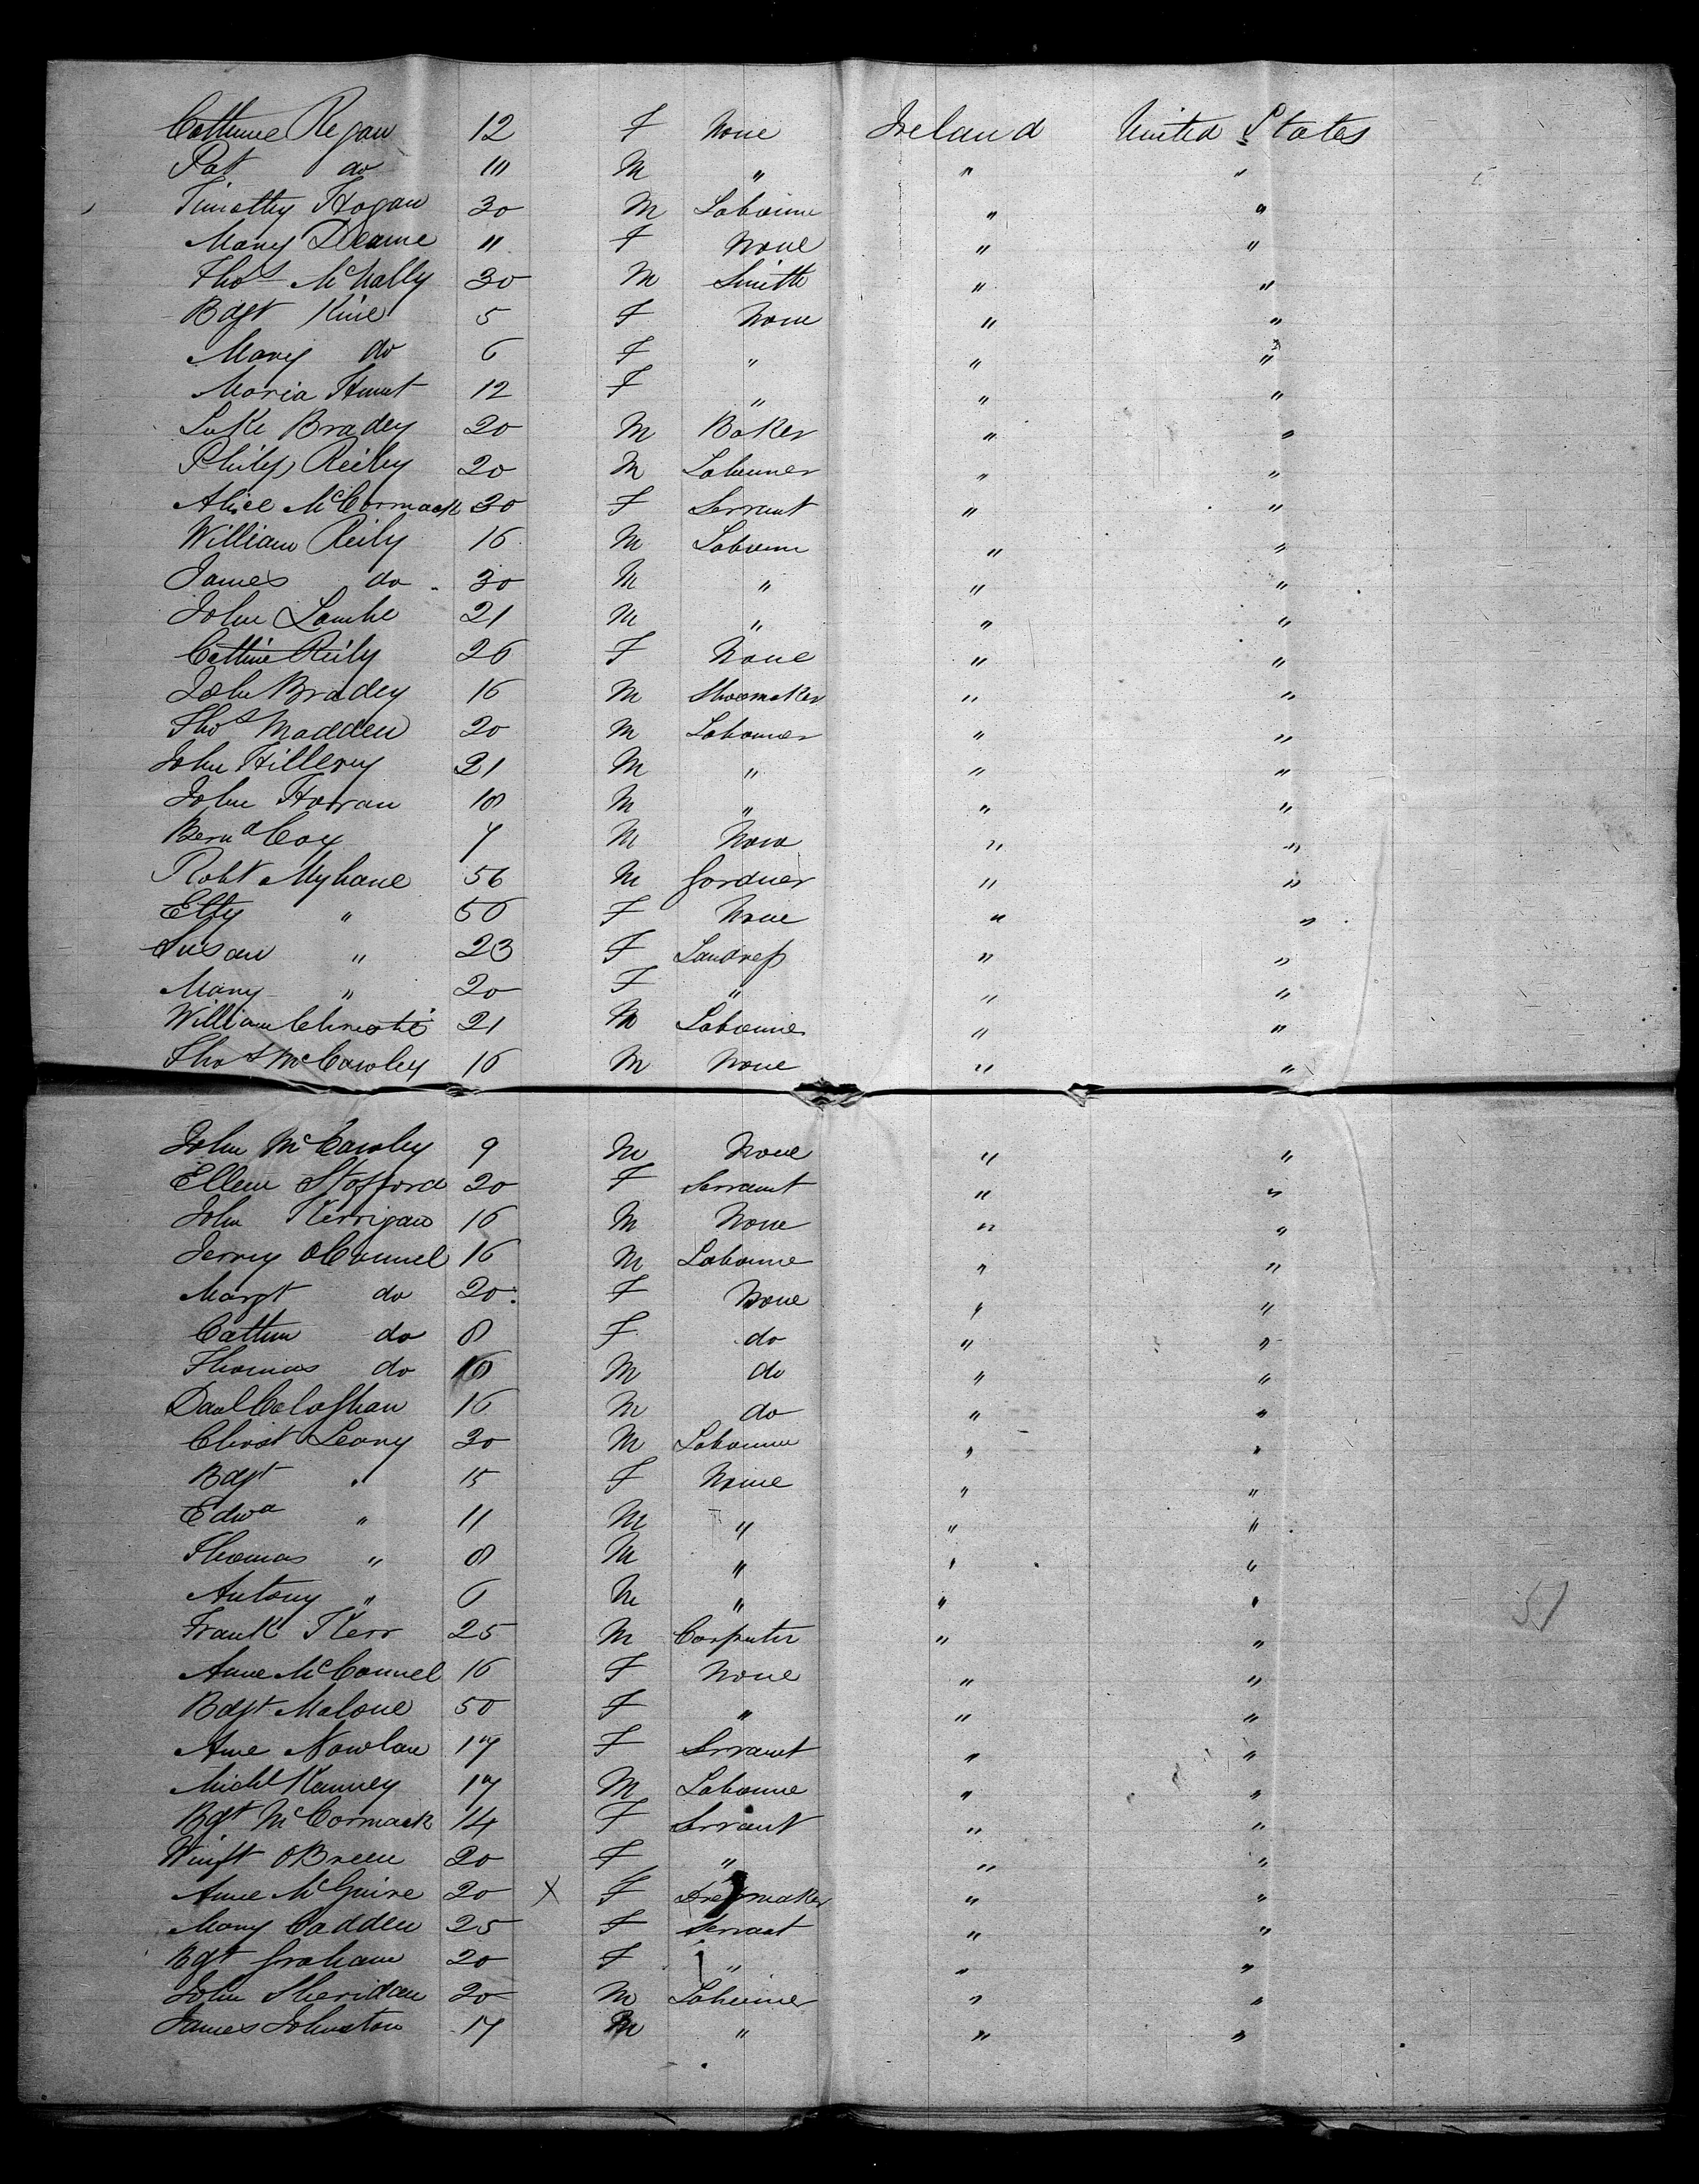 Catherine Regan 12 F None Ireland United States
Pat do 10 M " " "
Timothy Hogan 30 M Labourer " "
Mary Deame 11 F None " "
Thos McNally 30 M Smith " "
Bdgt Kine 5 F None " "
Mary do 6 F " " "
Maria Hunt 12 F " " "
Luke Bradey 20 M Baker " "
Philip Reiley 20 M Labourer " "
Alice McCormack 20 F Servant " "
William Reily 16 M Labourer " "
James do 30 M " " "
John Lambe 21 M " " "
Cathine Reily 26 F None " "
John Bradey 16 M Shoemaker " "
Thos Madden 20 M Labourer " "
John Hillery 21 M " " "
John Horan 18 M " " "
Bernd Cox 7 M None " "
Robt Myhane 56 M Gardner " "
Etty " 56 F None " "
Susan " 23 F Landress " "
Mary " 20 F " " "
William Christie 21 M Labourer " "
Thos McCawley 16 M None " "
John McCawley 9 M None " "
Ellen Stofford 20 F Servant " "
John Kerrigan 16 M None " "
Jerrey OConnel 16 M Labourer " "
Margt do 20 F None " "
Cathrin do 8 F do " "
Thomas do 10 M do " "
Danl Calaghan 16 M do " "
Christ Leary 30 M Labourer " "
Bdgt " 15 F None " "
Edwd " 11 M " " "
Thomas " 8 M " " "
Antony " 6 M " " "
Frank Kerr 25 M Carpenter " "
Anne McConnel 16 F None " "
Bdgt Malone 50 F " " "
Anne Nowlan 17 F Servant " "
Michl Kanney 17 M Labourer " "
Bgt McCormack 14 F Servant " "
Winft OBreen 20 F " " "
Anne McGuire 20 X F Dressmaker " "
Mary Cadden 25 F Servant " "
Bgt Graham 20 F " " "
John Sheridan 20 M Labourer " "
James Johnston 17 M " " "
51